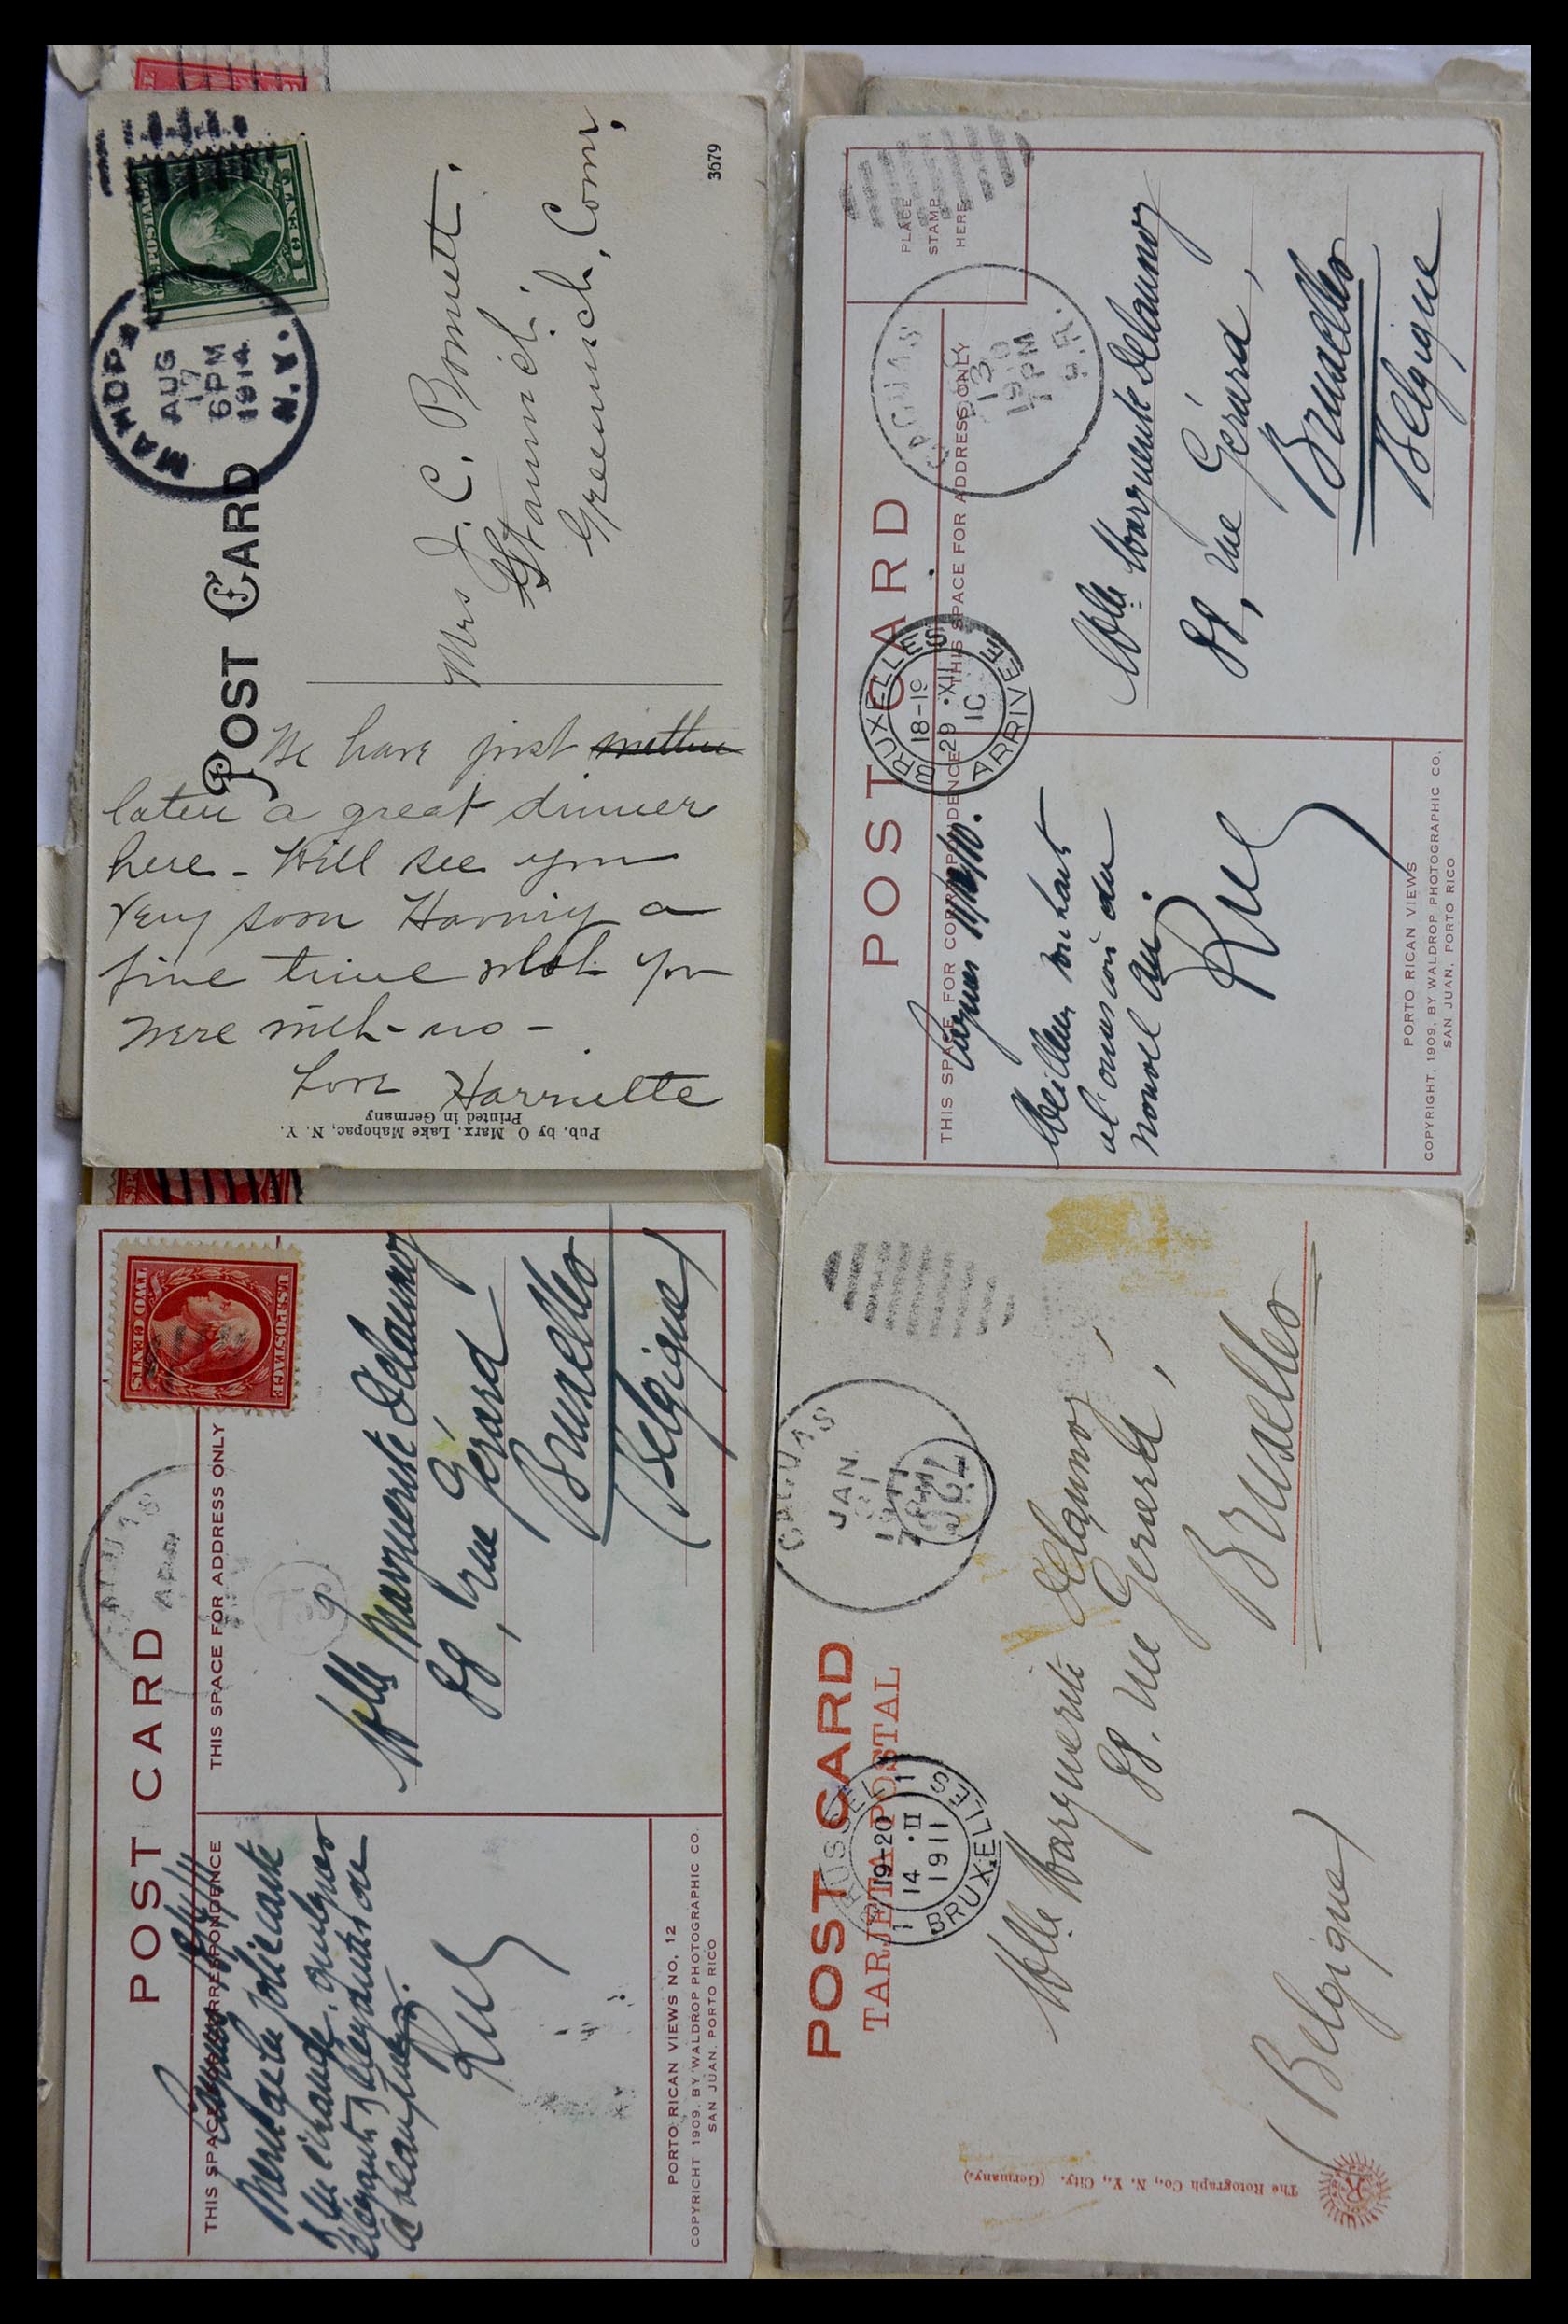 POST CARD
MAHOPAC
AUG
17
6 PM
1914
N.Y.
U.S. POSTAGE
1 CENT 1
We have just
eaten a great dinner
here - Will see you
very soon Having a
fine time wish you
were with us -
Love Harriette
Mrs J. C. Bonnett.
Greenwich, Conn,
3679
Pub. by O Marx, Lake Mahopac, N. Y.
Printed in Germany
POST CARD
PLACE
STAMP
HERE
THIS SPACE FOR CORRESPONDENCE
THIS SPACE FOR ADDRESS ONLY
CAGUAS
13
1910
1 PM
P.R.
BRUXELLES
18-19
29 XII
10
ARRIVEE
Caguas
Meilleurs souhaits
à l'occasion du
nouvel an.
Melle Marguerite Delannoy
88, rue Gérard,
Bruxelles
Belgique
PORTO RICAN VIEWS
COPYRIGHT, 1909, BY WALDROP PHOTOGRAPHIC CO.
SAN JUAN, PORTO RICO
POST CARD
THIS SPACE FOR CORRESPONDENCE
THIS SPACE FOR ADDRESS ONLY
U.S. POSTAGE
TWO CENTS
CAGUAS
APR
Caguas
Merci de la jolie carte
Melle Marguerite Delannoy
88, rue Gérard
Bruxelles
(Belgique)
PORTO RICAN VIEWS NO. 12
COPYRIGHT 1909, BY WALDROP PHOTOGRAPHIC CO.
SAN JUAN, PORTO RICO
POST CARD
TARJETA POSTAL
CAGUAS
JAN
31
1911
BRUSSEL 1
19-20
14 · II
1911
1 BRUXELLES
Melle Marguerite Delannoy,
88. rue Gérard,
Bruxelles
(Belgique)
The Rotograph Co., N. Y. City. (Germany.)